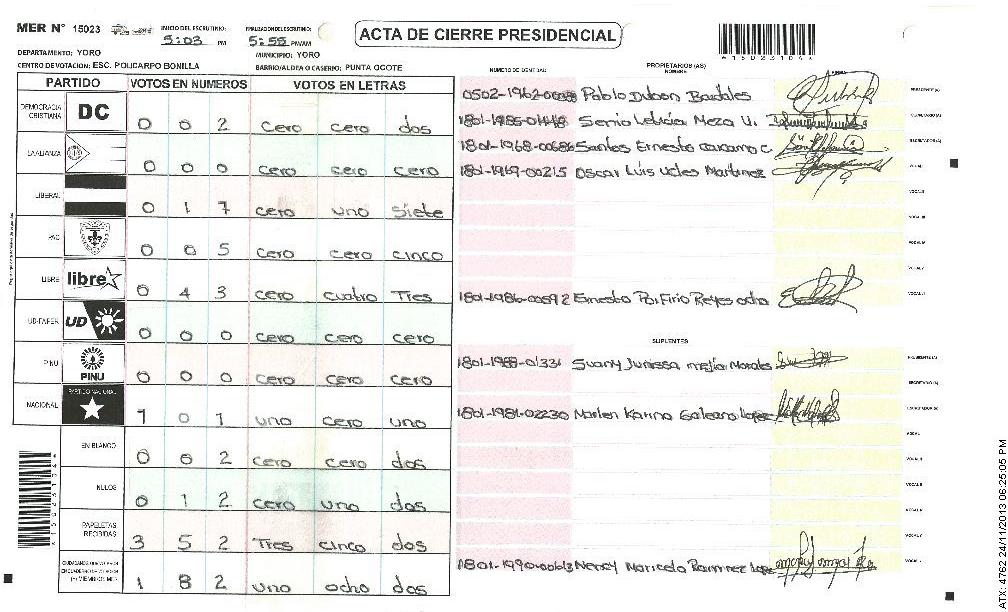 MER N° 15023 INICIO DEL ESCRUTINIO: 5:03 PM FINALIZACION DEL ESCRUTINIO: 5:55 PM/AM
ACTA DE CIERRE PRESIDENCIAL
DEPARTAMENTO: YORO MUNICIPIO: YORO
CENTRO DE VOTACION: ESC. POLICARPO BONILLA BARRIO/ALDEA O CASERIO: PUNTA OCOTE
PARTIDO VOTOS EN NUMEROS VOTOS EN LETRAS
DEMOCRACIA CRISTIANA DC 0 0 2 cero cero dos
LA ALIANZA 0 0 0 cero cero cero
LIBERAL 0 1 7 cero uno siete
PAC 0 0 5 cero cero cinco
LIBRE libre 0 4 3 cero cuatro Tres
UD-FAPER UD 0 0 0 cero cero cero
PINU PINU 0 0 0 cero cero cero
NACIONAL PARTIDO NACIONAL 1 0 1 uno cero uno
EN BLANCO 0 0 2 cero cero dos
NULOS 0 1 2 cero uno dos
PAPELETAS RECIBIDAS 3 5 2 Tres cinco dos
1 8 2 uno ocho dos
NUMERO DE IDENTIDAD PROPIETARIOS (AS) NOMBRE FIRMA
0502-1962- Pablo Dubon Bardales PRESIDENTE (A)
1801-1985- Leticia Meza U. SECRETARIO (A)
1801-1968-00686 Santos Ernesto Carcamo C ESCRUTADOR (A)
1801-1969-00215 Oscar Luis Ucles Martinez VOCAL I
VOCAL II
VOCAL III
VOCAL IV
VOCAL V
1801-1986-00592 Ernesto Porfirio Reyes ocho VOCAL VI
SUPLENTES
1801-1988-01331 Suany Junissa mejia Morales PRESIDENTE (A)
SECRETARIO (A)
1801-1981-02230 Marlen Karina Galeano Lopez ESCRUTADOR (A)
VOCAL I
VOCAL II
VOCAL III
VOCAL IV
VOCAL V
1801-1990- Nency Maricela Ramirez Lopez VOCAL VI
*15023104*
ATX: 4762 24/11/2013 06:25:05 PM